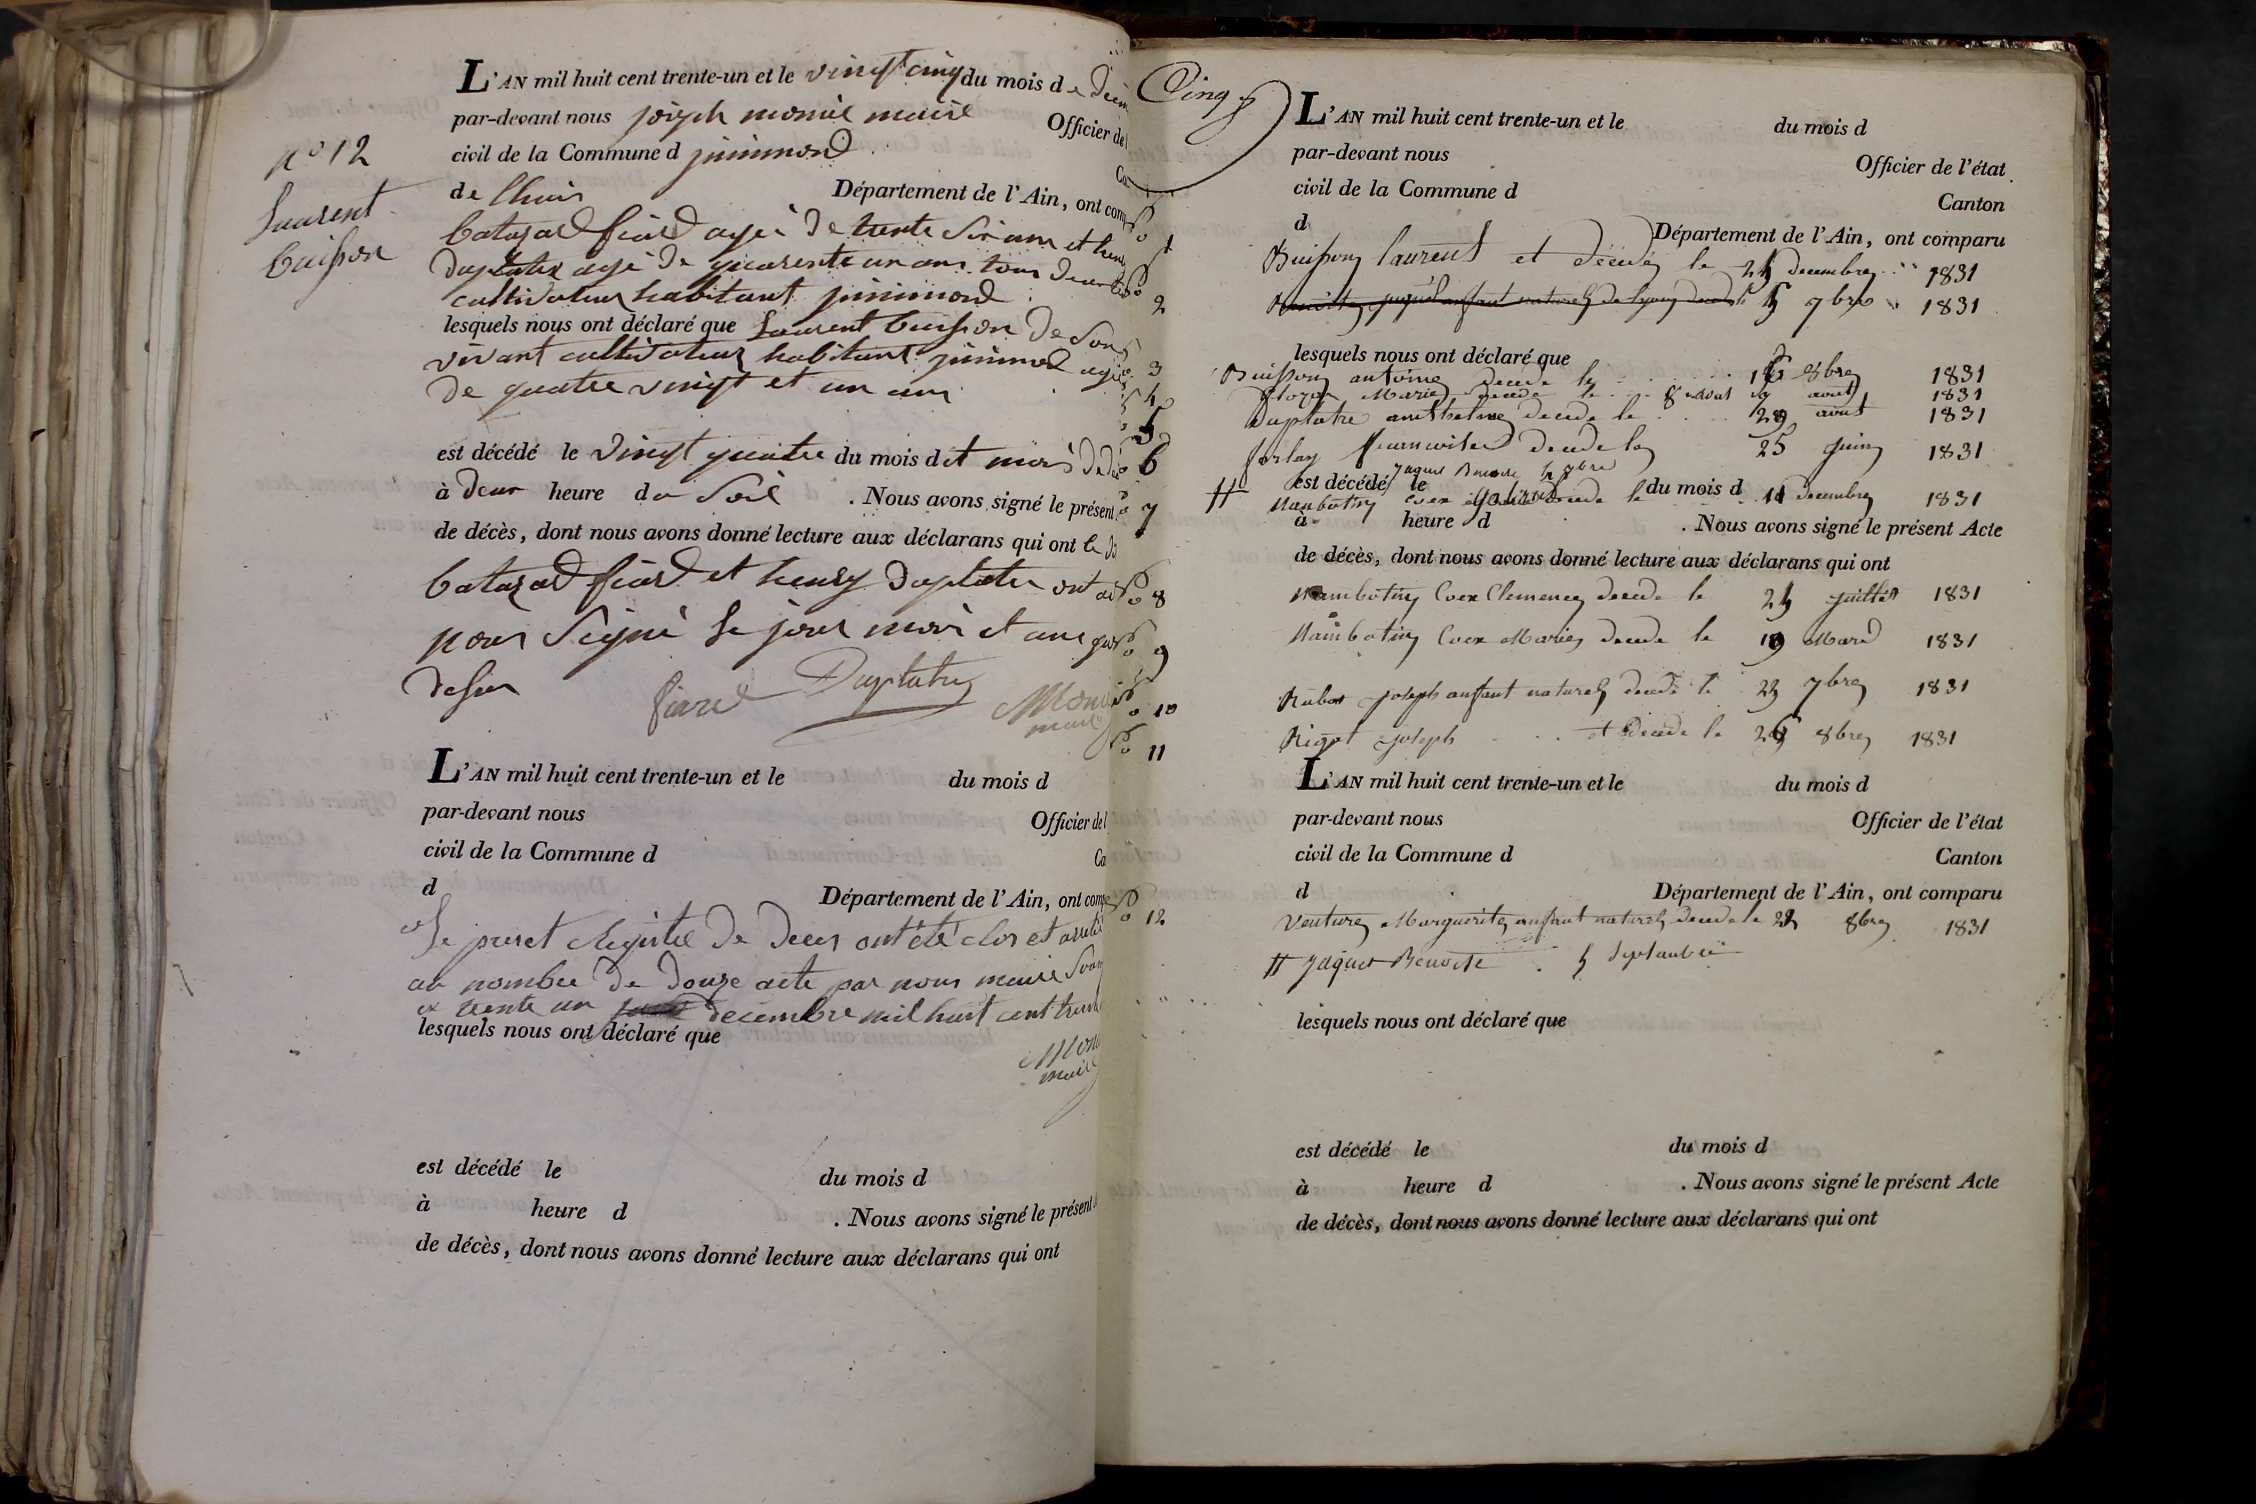 L'AN mil huit cent trente-un et le vingt cinq du mois de
par-devant nous joseph monie maire Officier de l
civil de la Commune d
de lhuis Département de l'Ain, ont com
n° 12
Laurent
buisson
batazard fiard agé de trente six ans et henry
duplatre agé de quarente un ans tous deux
cultivateur habitant
lesquels nous ont déclaré que Laurent buisson de son
vivant cultivateur habitant agé
de quatre vingt et un ans
est décédé le vingt quatre du mois dit mois de
à deux heure du Soir . Nous avons signé le présent
de décès, dont nous avons donné lecture aux déclarans qui ont
batazard fiard et henry duplatre ont
nous Signé Le jour mois et ans que
dessus
fiard Duplatre
maire
L'AN mil huit cent trente-un et le du mois d
par-devant nous Officier de l
civil de la Commune d Ca
d Département de l'Ain, ont comp
Le preset Registre de deces ont été clos et arreté
au nombre de douze acte par nous maire
trente un decembre mil huit cent trente
lesquels nous ont déclaré que
maire
est décédé le du mois d
à heure d . Nous avons signé le présent
de décès, dont nous avons donné lecture aux déclarans qui ont
Cinq
L'AN mil huit cent trente-un et le du mois d
par-devant nous Officier de l'état
civil de la Commune d Canton
d Département de l'Ain, ont comparu
1 Buisson laurent et décédé le 24 decembre 1831
2 enfant naturel de 5 7bre 1831
lesquels nous ont déclaré que
3 Buisson antoine decede le 16 8bre 1831
4 Marie decede le 8 aout 1831
5 Duplatre anthelme decede le 29 aout 1831
6 decede le 25 juin 1831
est décédé le du mois d
Jaquet Benoite 5 7bre
# 7 Mambotin Coex decede le 11 decembre 1831
à heure d . Nous avons signé le présent Acte
de décès, dont nous avons donné lecture aux déclarans qui ont
8 Mambotin Coex Clemence decede le 24 juillet 1831
9 Mambotin Coex Marie decede le 19 Mars 1831
10 Rubat joseph anfant naturel decede le 23 7bre 1831
11 Rigot joseph et decede le 26 8bre 1831
L'AN mil huit cent trente-un et le du mois d
par-devant nous Officier de l'état
civil de la Commune d Canton
d Département de l'Ain, ont comparu
12 Venture Marguerite anfant naturel decede le 8bre 1831
# Jaquet Benoite 5 Septambre
lesquels nous ont déclaré que
est décédé le du mois d
à heure d . Nous avons signé le présent Acte
de décès, dont nous avons donné lecture aux déclarans qui ont